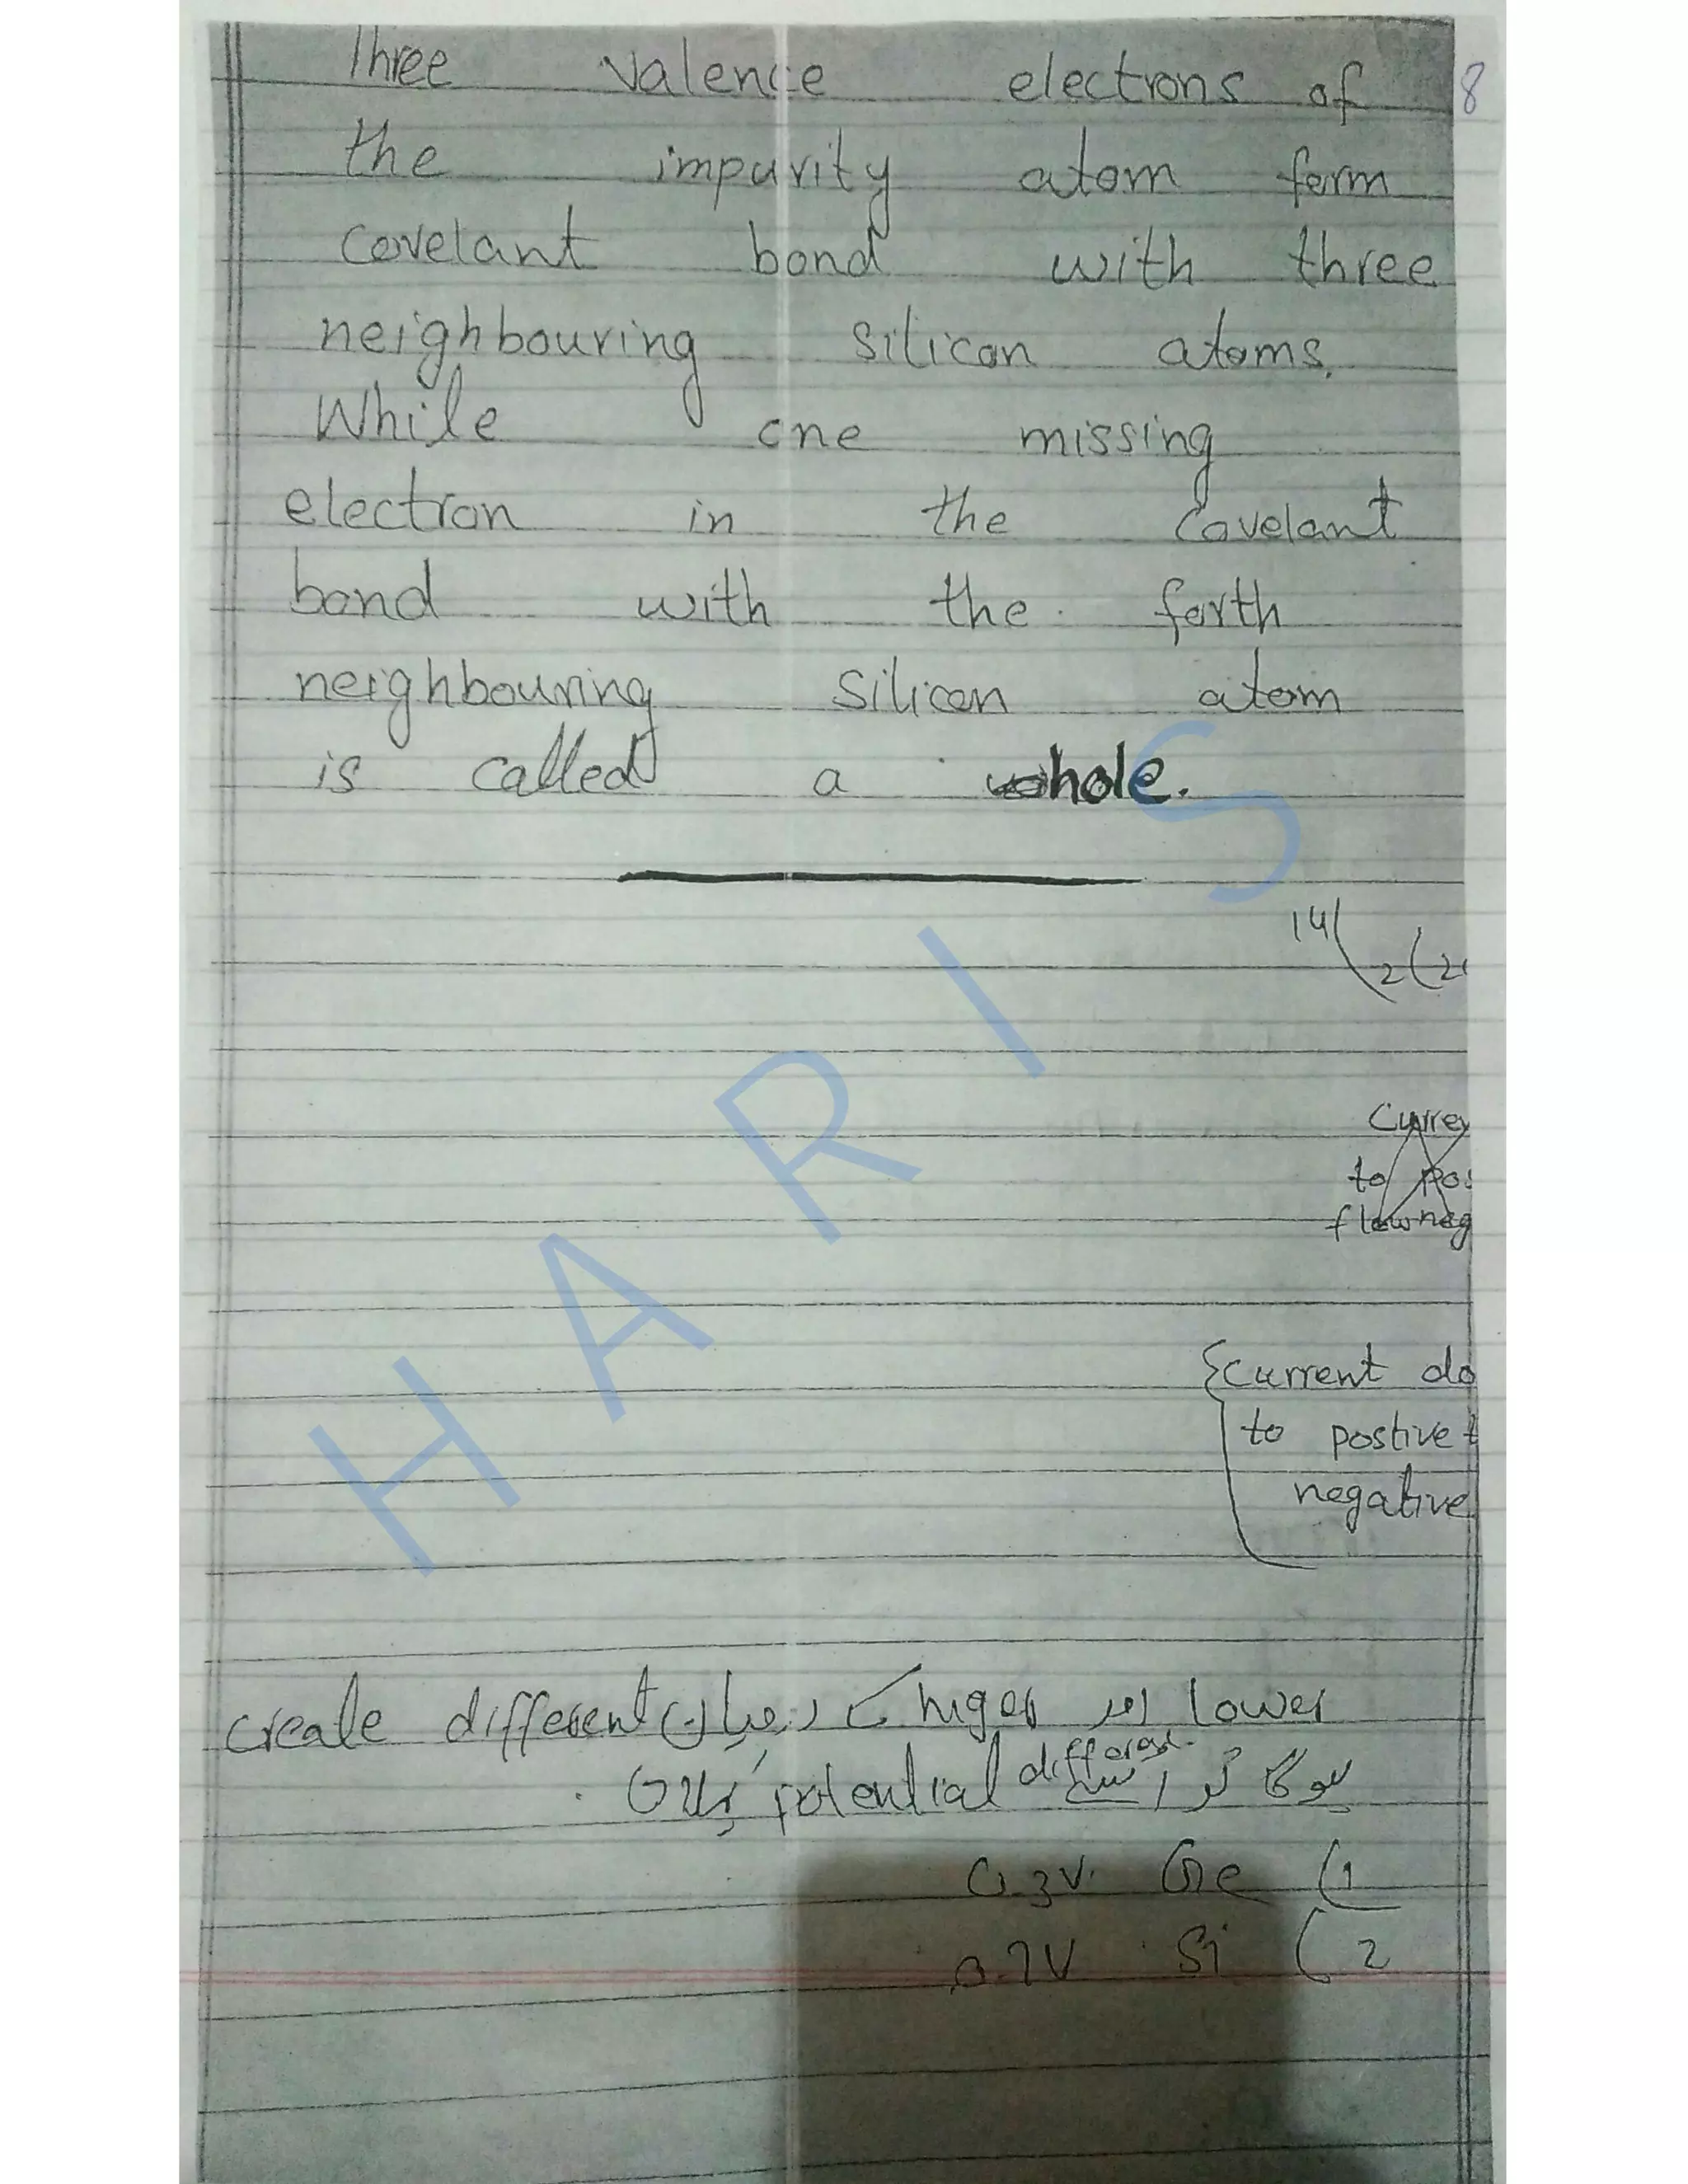 Three valence electrons of 8
the impurity atom form
covelant bond with three
neighbouring silicon atoms.
While one missing
electron in the covelant
bond with the forth
neighbouring silicon atom
is called a hole.
14 2 (2
Curre
to pos
flow neg
{current do
to postive t
negative
lower اور higer کے درمیان different create
ہوگا تو اسے potential different
1) Ge 0.3V.
2) Si 0.7V
HARIS